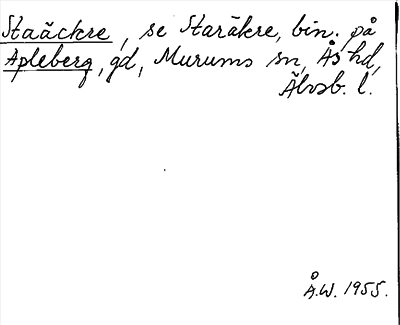 Staäckre, se Staråkre, bin. på
Apleberg, gd, Murums sn, Ås hd,
Älvsb. l.
Å.W. 1955.